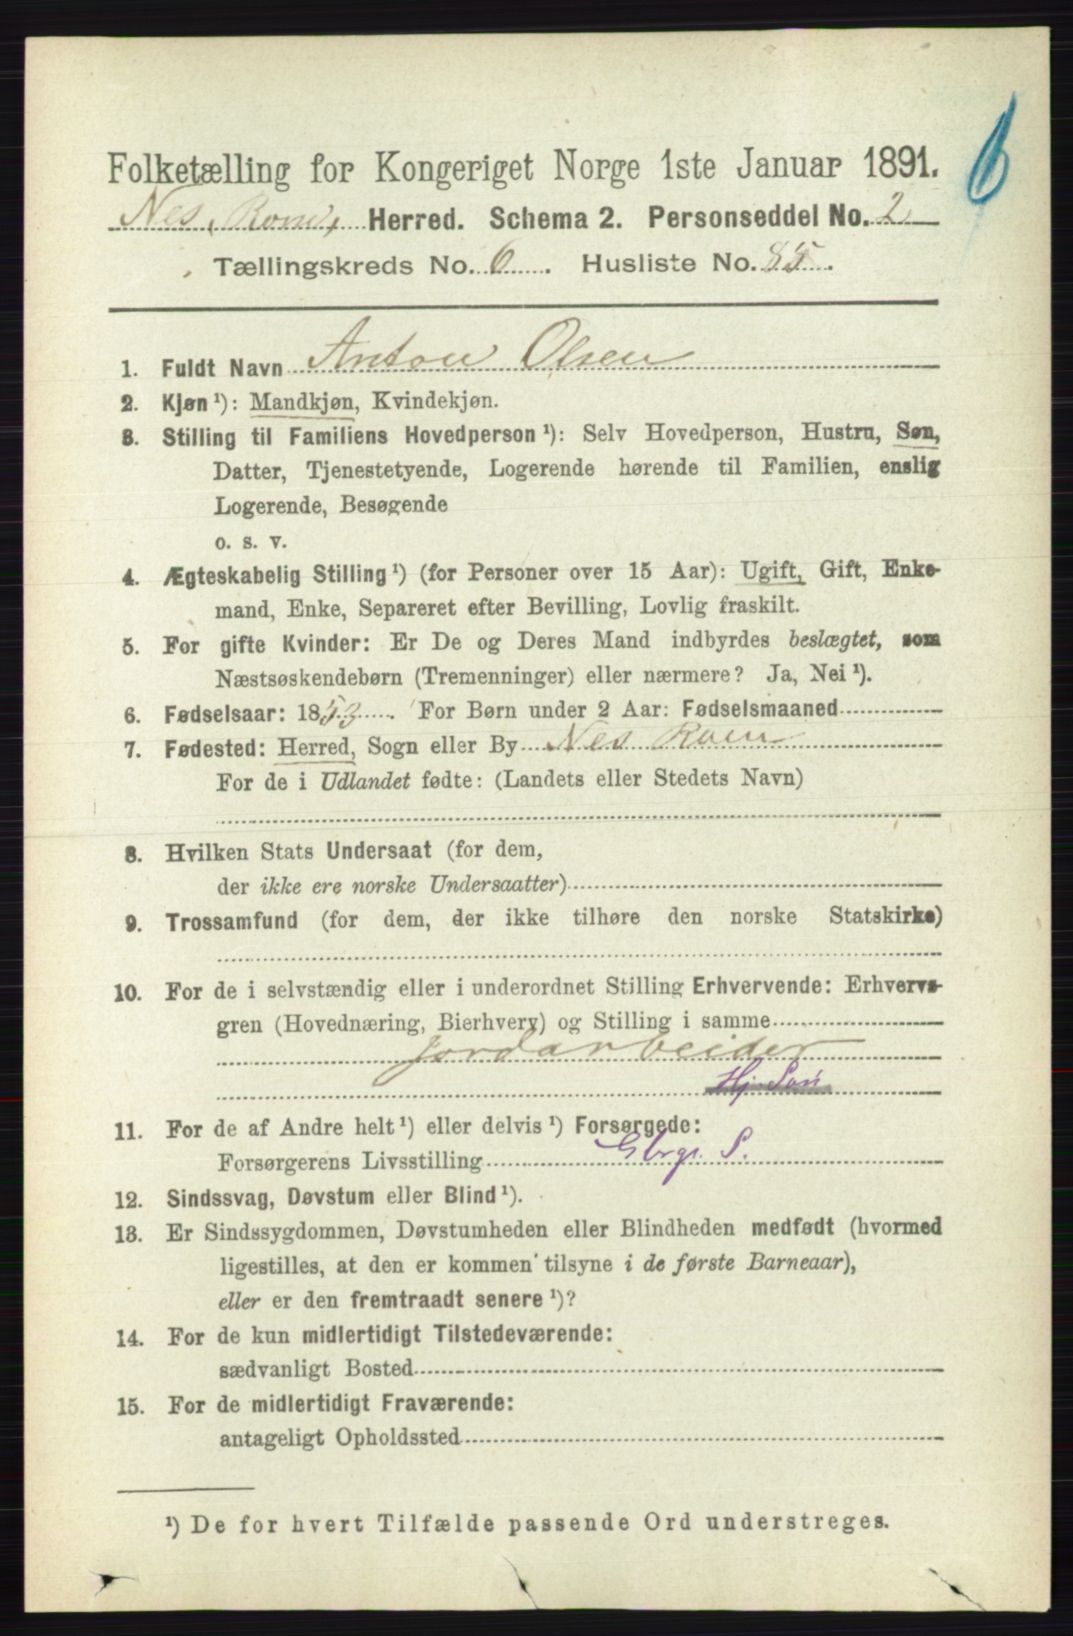 Folketælling for Kongeriget Norge 1ste Januar 1891.
Nes, Rom, Herred. Schema 2. Personseddel No. 2
Tællingskreds No. 6. Husliste No. 85.
1. Fuldt Navn Anton Olsen
2. Kjøn ¹): Mandkjøn, Kvindekjøn.
3. Stilling til Familiens Hovedperson ¹): Selv Hovedperson, Hustru, Søn,
Datter, Tjenestetyende, Logerende hørende til Familien, enslig
Logerende, Besøgende
o. s. v.
4. Ægteskabelig Stilling ¹) (for Personer over 15 Aar): Ugift, Gift, Enke-
mand, Enke, Separeret efter Bevilling, Lovlig fraskilt.
5. For gifte Kvinder: Er De og Deres Mand indbyrdes beslægtet, som
Næstsøskendebørn (Tremenninger) eller nærmere? Ja, Nei ¹).
6. Fødselsaar: 1853. For Børn under 2 Aar: Fødselsmaaned
7. Fødested: Herred, Sogn eller By Nes Rom
For de i Udlandet fødte: (Landets eller Stedets Navn)
8. Hvilken Stats Undersaat (for dem,
der ikke ere norske Undersaatter)
9. Trossamfund (for dem, der ikke tilhøre den norske Statskirke)
10. For de i selvstændig eller i underordnet Stilling Erhvervende: Erhvervs-
gren (Hovednæring, Bierhverv) og Stilling i samme
Jordarbeider
Hj. Søn
11. For de af Andre helt ¹) eller delvis ¹) Forsørgede:
Forsørgerens Livsstilling Gbrgr. S.
12. Sindssvag, Døvstum eller Blind ¹).
13. Er Sindssygdommen, Døvstumheden eller Blindheden medfødt (hvormed
ligestilles, at den er kommen tilsyne i de første Barneaar),
eller er den fremtraadt senere ¹)?
14. For de kun midlertidigt Tilstedeværende:
sædvanligt Bosted
15. For de midlertidigt Fraværende:
antageligt Opholdssted
¹) De for hvert Tilfælde passende Ord understreges.